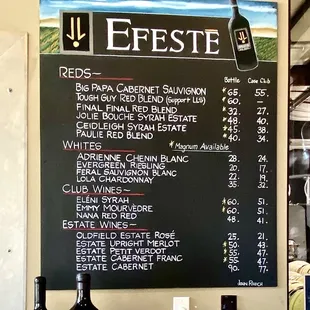 EFESTĒ
Bottle Case Club
REDS~
BIG PAPA CABERNET SAUVIGNON *65. 55.
TOUGH GUY RED BLEND (Support LLS) *60.
FINAL FINAL RED BLEND *32. 27.
JOLIE BOUCHE SYRAH ESTATE *48. 40.
CEIDLEIGH SYRAH ESTATE *45. 38.
PAULIE RED BLEND *40. 34.
WHITES *Magnum Available
ADRIENNE CHENIN BLANC 28. 24.
EVERGREEN RIESLING 20. 17.
FERAL SAUVIGNON BLANC 22. 19.
LOLA CHARDONNAY 35. 32.
CLUB WINES~
ELENI SYRAH *60. 51.
EMMY MOURVÈDRE *60. 51.
NANA RED RED 48.
ESTATE WINES~
OLDFIELD ESTATE ROSÉ 25. 21.
ESTATE UPRIGHT MERLOT *50. 43.
ESTATE PETIT VERDOT *55. 47.
ESTATE CABERNET FRANC *55. 47.
ESTATE CABERNET 90. 77.